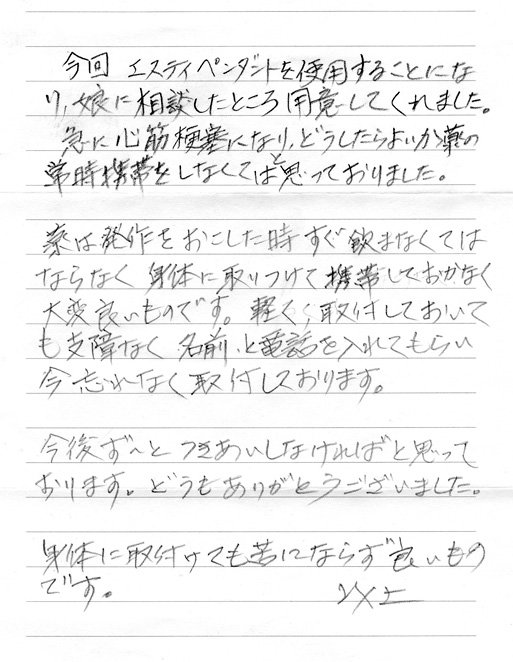 今回 エスティペンダントを使用することにな
り、娘に相談したところ用意してくれました。
急に心筋梗塞になり、どうしたらよいか薬の
常時携帯をしなくてはと思っておりました。
薬は発作をおこした時すぐ飲まなくては
ならなく 身体に取りつけて携帯しておかなく
大変良いものです。軽く、取付しておいて
も支障なく 名前、と電話を入れてもらい
今忘れなく取付しております。
今後ず〜と つきあいしなければと思って
おります。どうもありがとうございました。
身体に取付けても苦にならず良いもの
です。 以上